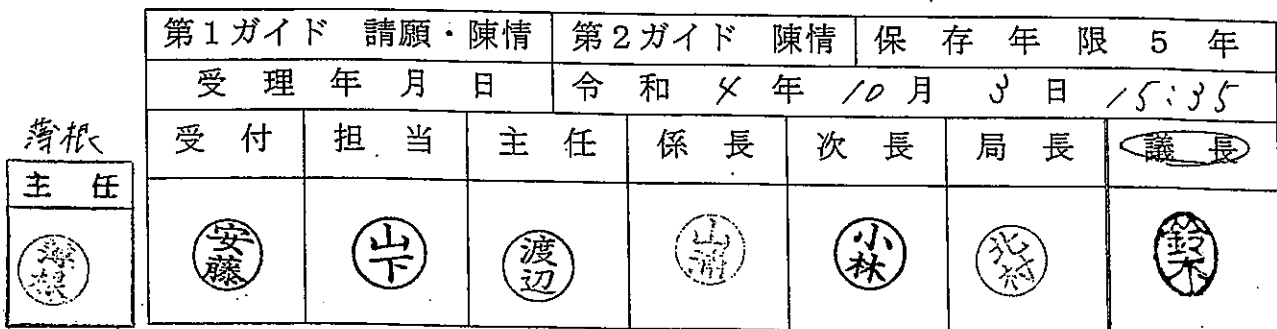 第1ガイド 請願・陳情 第2ガイド 陳情 保存年限5年
受理年月日 令和4年10月3日 15:35
薄根 受付 担当 主任 係長 次長 局長 議長
主任
薄根 安藤 山下 渡辺 山浦 小林 北村 鈴木